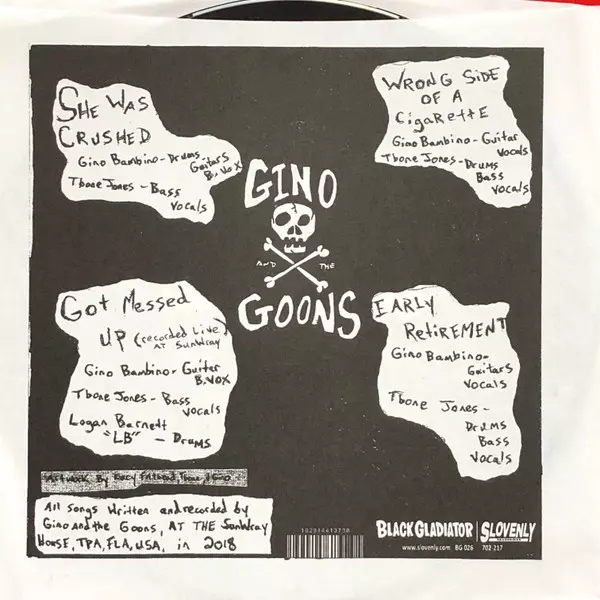 She Was
Crushed
Gino Bambino - Drums
Guitars
B. Vox
Tbone Jones - Bass
Vocals
Wrong Side
of a
Cigarette
Gino Bambino - Guitar
Vocals
Tbone Jones - Drums
Bass
Vocals
GINO
AND THE
GOONS
Got Messed
Up (recorded Live
AT SunWray)
Gino Bambino - Guitar
B. VOX
Tbone Jones - Bass
Vocals
Logan Barnett
"LB" - Drums
EARLY
RetiREMENT
Gino Bambino -
Guitars
Vocals
Tbone Jones -
Drums
Bass
Vocals
Artwork By
All songs Written and recorded by
Gino and the Goons, AT THE SunWray
House, TPA, FLA, USA, in 2018
BLACK GLADIATOR | SLOVENLY
RECORDINGS
www.slovenly.com BG 026 702 217